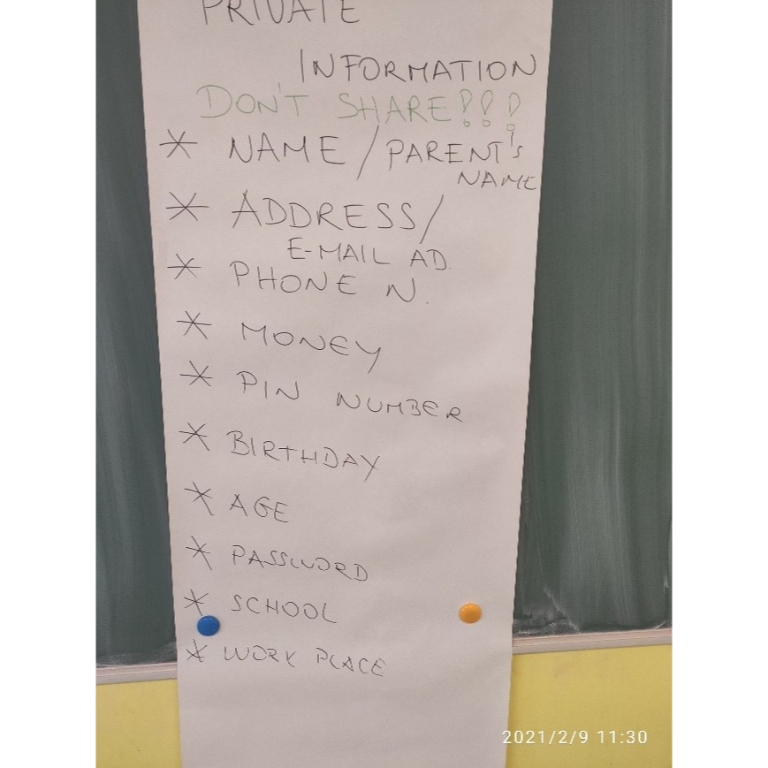 PRIVATE
INFORMATION
DON'T SHARE!!!
* NAME / PARENT'S
NAME
* ADDRESS/
E-MAIL AD.
* PHONE N.
* MONEY
* PIN NUMBER
* BIRTHDAY
* AGE
* PASSWORD
* SCHOOL
* WORK PLACE
2021/2/9 11:30